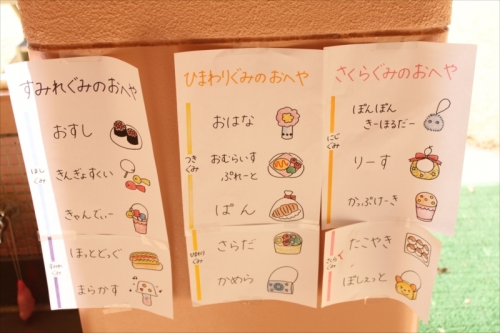 すみれぐみのおへや
おすし
ほし
ぐみ
きんぎょすくい
きゃんでぃー
ほっとどっぐ
すみれ
ぐみ
まらかす
ひまわりぐみのおへや
おはな
つき
ぐみ
おむらいす
ぷれーと
ぱん
さらだ
ひまわり
ぐみ
かめら
さくらぐみのおへや
ぽんぽん
きーほるだー
にじ
ぐみ
りーす
かっぷけーき
たこやき
さくら
ぐみ
ぽしぇっと